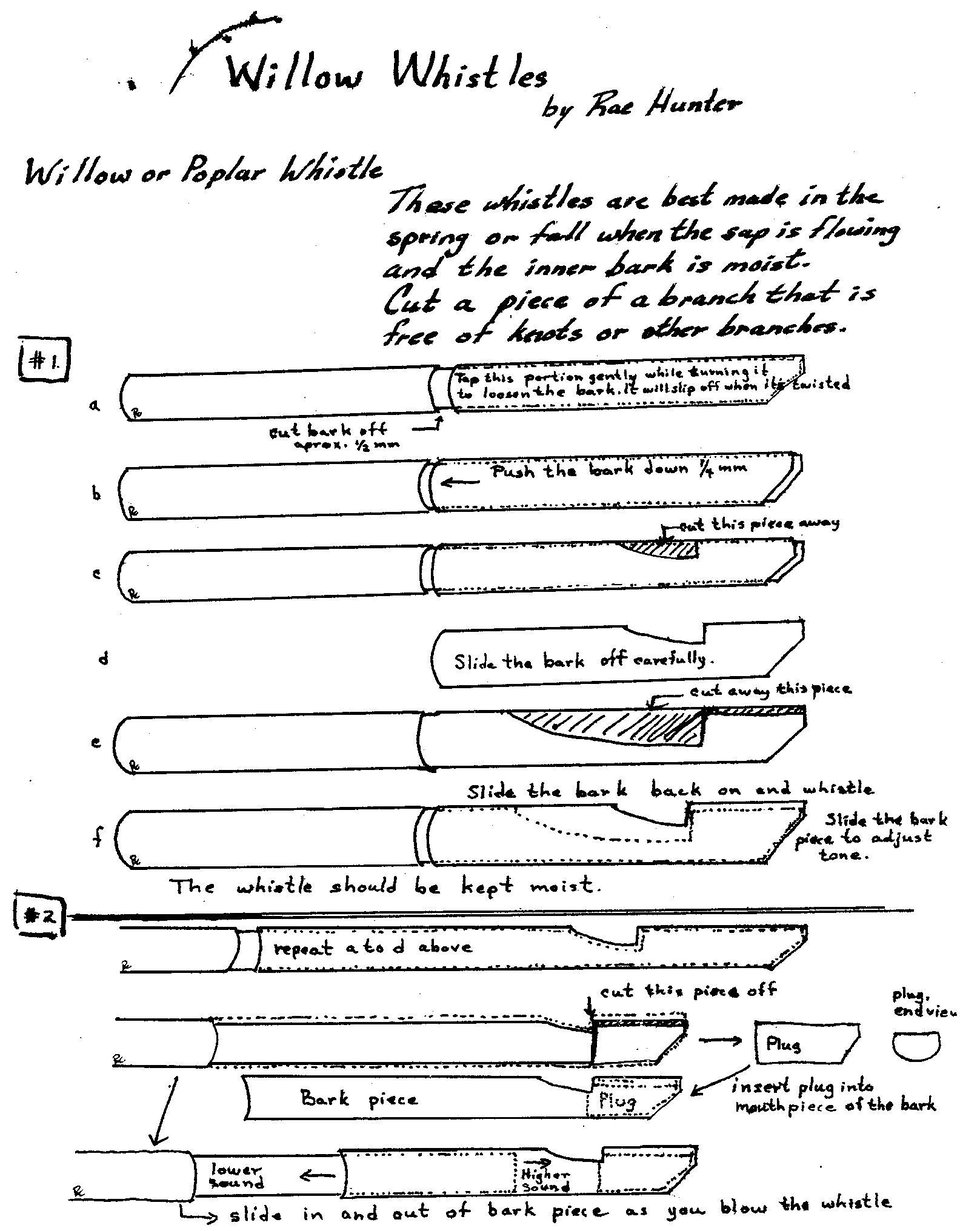 Willow Whistles
by Rae Hunter
Willow or Poplar Whistle
These whistles are best made in the
spring or fall when the sap is flowing
and the inner bark is moist.
Cut a piece of a branch that is
free of knots or other branches.
#1.
a
Tap this portion gently while turning it
to loosen the bark. It will slip off when its twisted
cut bark off
aprox. 1/2 mm
b
Push the bark down 1/4 mm
c
cut this piece away
d
Slide the bark off carefully.
e
cut away this piece
Slide the bark back on end whistle
f
Slide the bark
piece to adjust
tone.
The whistle should be kept moist.
#2
repeat a to d above
cut this piece off
plug,
end view
Plug
insert plug into
mouthpiece of the bark
Bark piece
Plug
lower
sound
Higher
sound
slide in and out of bark piece as you blow the whistle